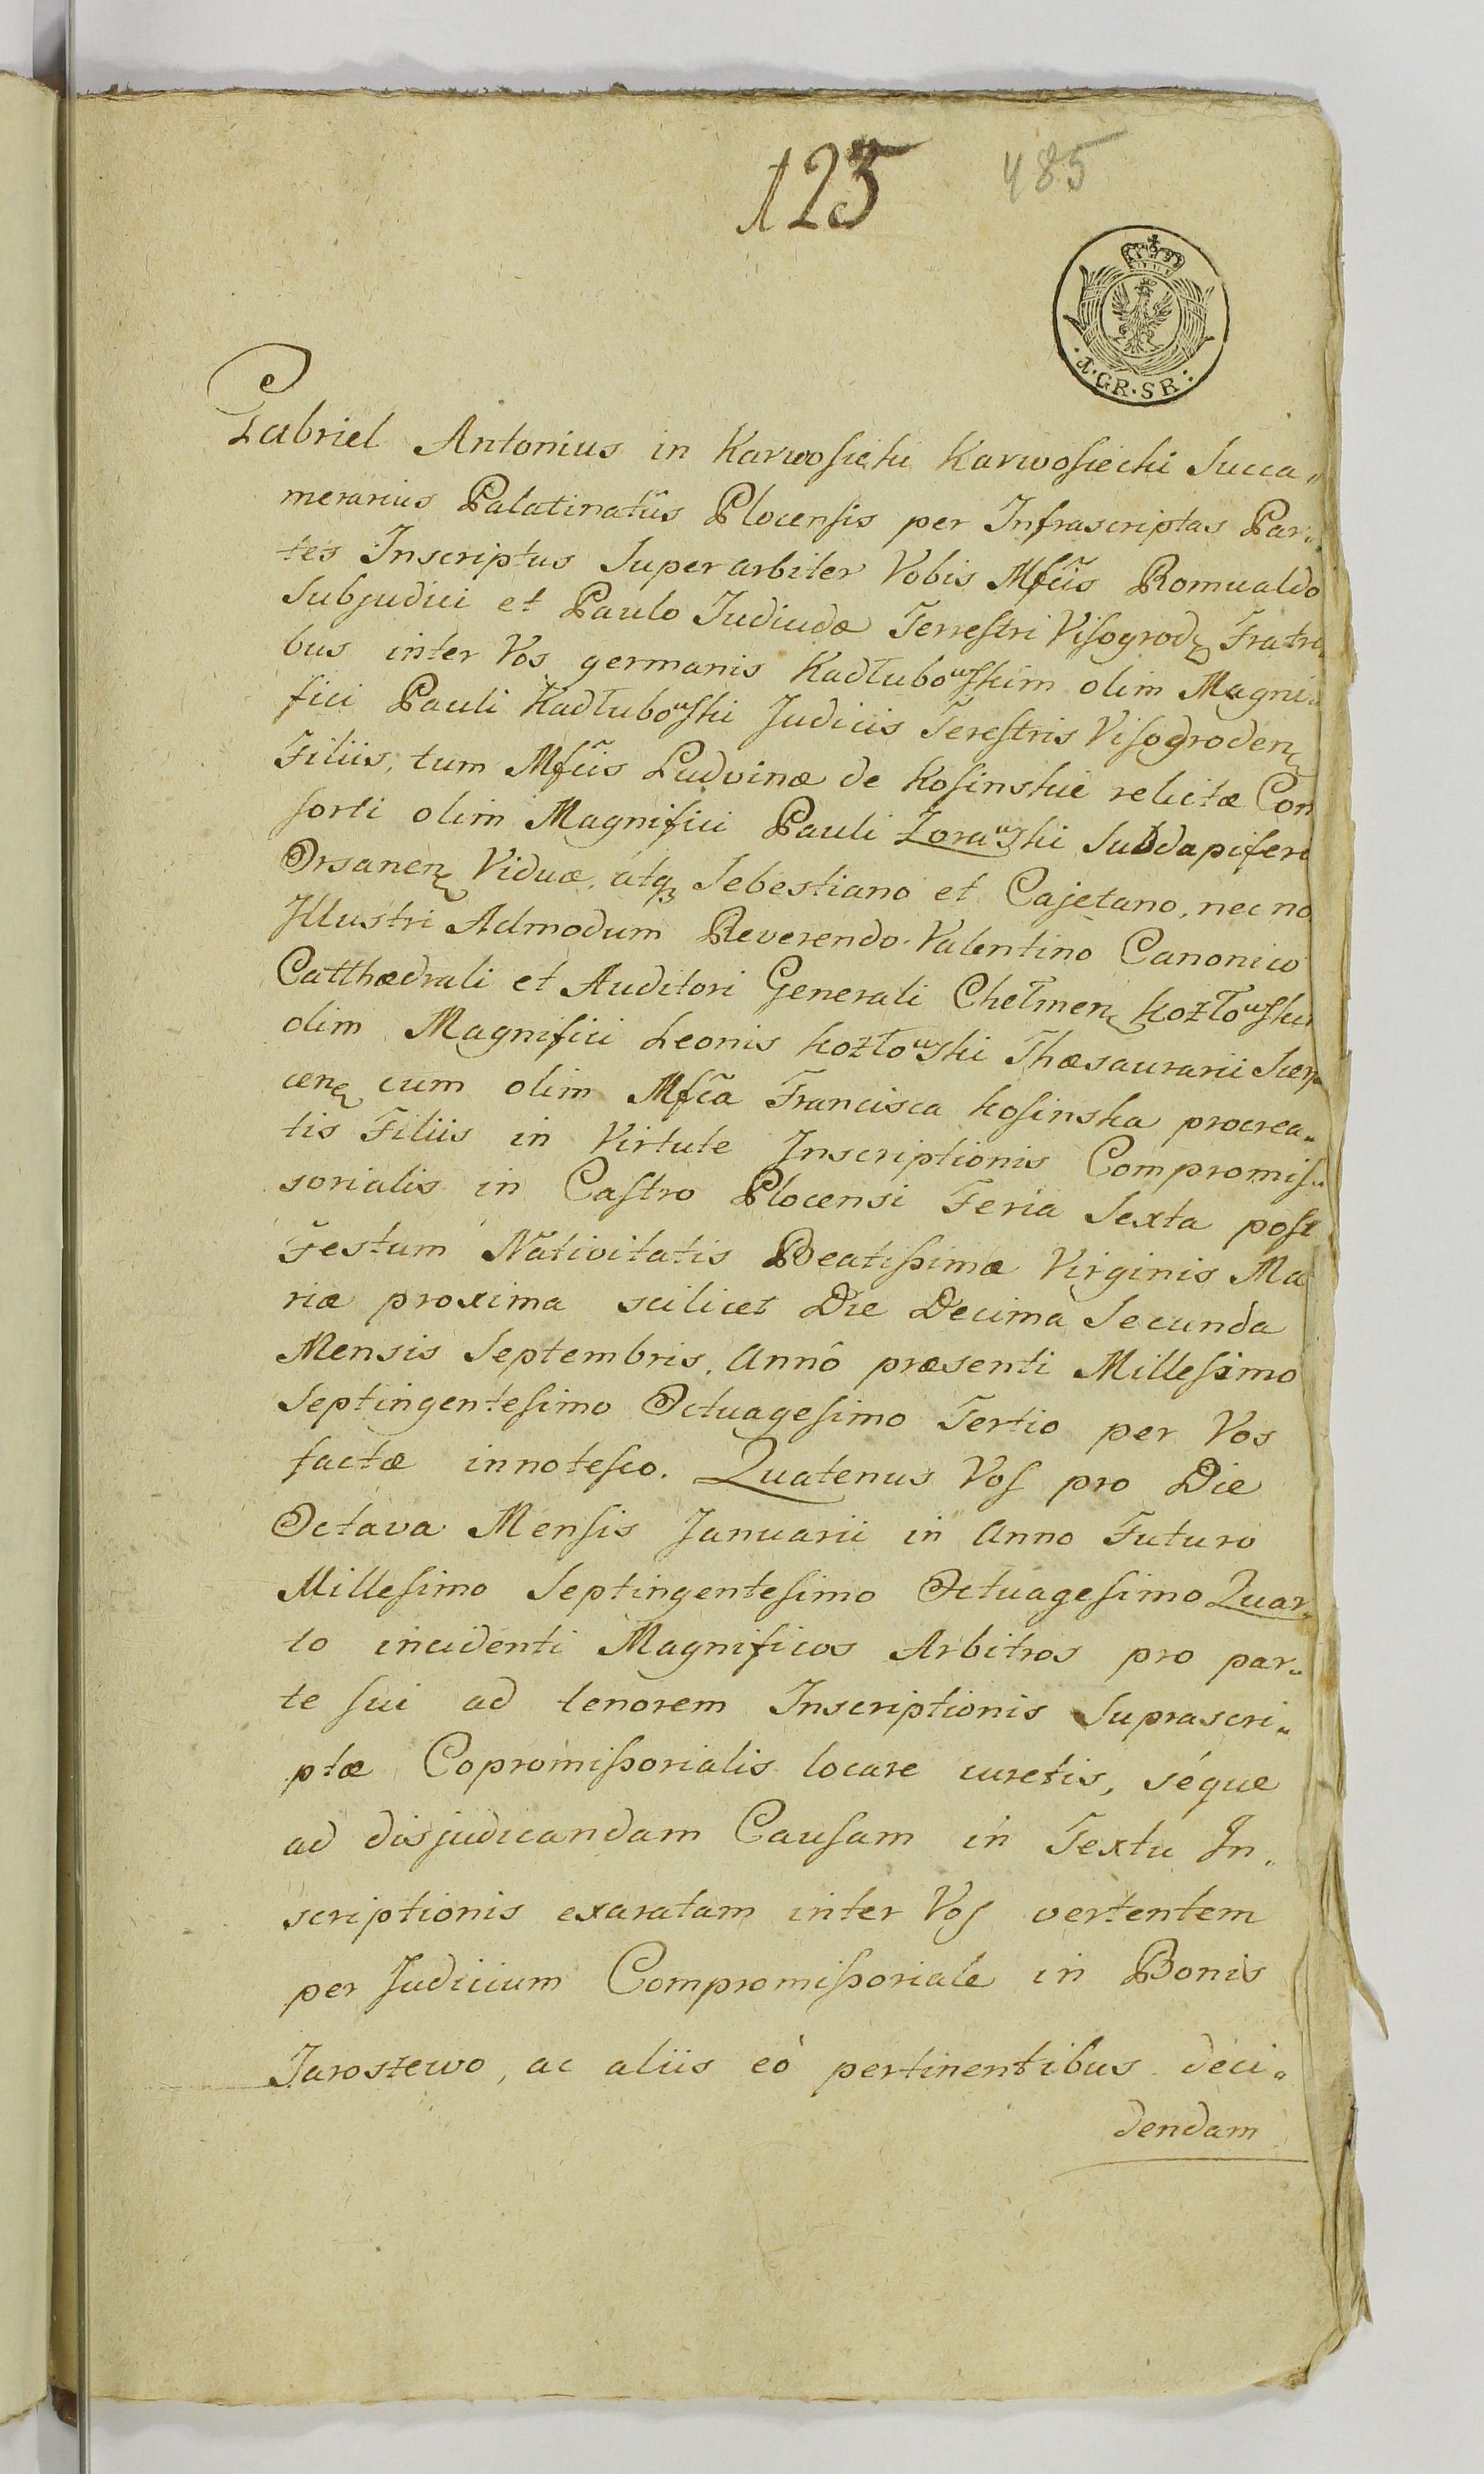 125 485
·1·GR·SR:
Gabriel Antonius in Karwosieki Karwosiecki Succa„
merarius Palatinatûs Plocensis per Infrascriptas Par„
tes Inscriptus Superarbiter Vobis Mfcis Romualdo
Subjudici et Paulo Terrestri Visogrod Fratri„
bus inter Vos germanis Kadłubowskim olim Magni„
fici Pauli Kadłubowski Judicis Terestris Visogroden
Filiis, tum Mfcis Ludvinæ de Kosinskie relictæ Con
sorti olim Magnifici Pauli Zorawski Subdapiferi
Orsanen Viduæ, atq Sebestiano et Cajetano, nec no
Illustri Admodum Reverendo Valentino Canonico
Catthædrali et Auditori Generali Chełmen Kozłowskie
olim Magnifici Leonis Kozłowski Thæsaurarii
cen cum olim Mfca Francisca Kosinska procrea„
tis Filiis in Virtute Inscriptionis Compromis„
sorialis in Castro Plocensi Feria Sexta post
Festum Nativitatis Beatissimæ Virginis Ma
riæ proxima scilicet Die Decima Secunda
Mensis Septembris. Annô præsenti Millesimo
Septingentesimo Octuagesimo Tertio per Vos
factæ innotesco. Quatenus Vos pro Die
Octava Mensis Januarii in Anno Futuro
Millesimo Septingentesimo Octuagesimo Quar„
to incidenti Magnificos Arbitros pro par„
te sui ad tenorem Inscriptionis Suprascri„
ptæ Copromissorialis locare curetis, séque
ad disjudicandam Causam in Textu In„
scriptionis exaratam inter Vos vertentem
per Judicium Compromissoriale in Bonis
Jarostewo, ac aliis eò pertinentibus deci„
dendam